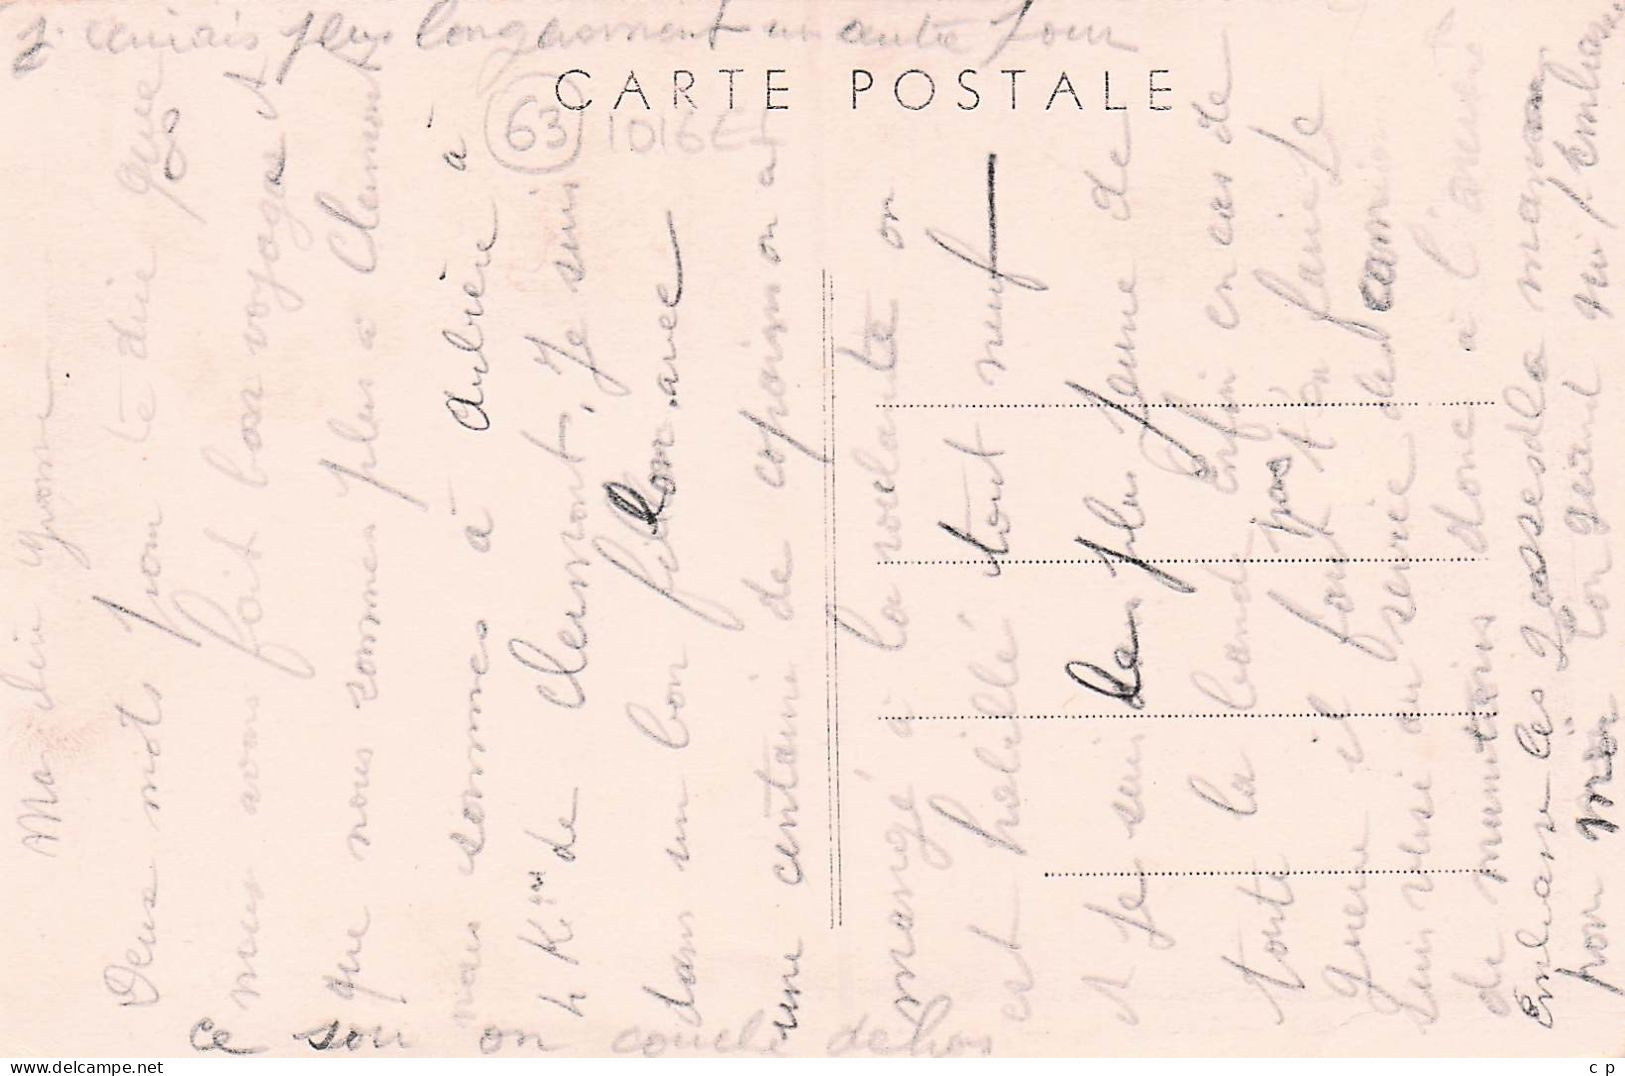 j'écrirais plus longuement un autre jour
CARTE POSTALE
63
Ma chère Yvonne
Deux mots pour te dire que
nous avons fait bon voyage et
que nous sommes plus à Clermont
mais sommes à Aubière à
4 Km de Clermont. Je suis
dans un bon filon avec
une centaine de copains on a
mangé à la roulante on
est habillé tout neuf
et je suis le plus jeune de
toute la bande Enfin en cas de
guerre il faut pas t'en faire je
suis versé au service des camions
de munitions donc à l'arrière
Embrasse les gosses de la maman
pour moi ton gérant qui t'embrasse
ce soir on couche dehors